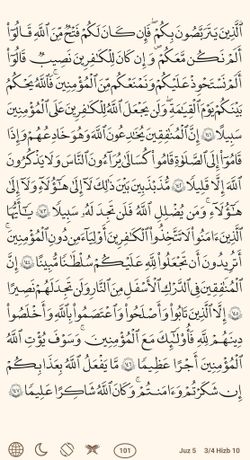 ٱلَّذِينَ يَتَرَبَّصُونَ بِكُمْ فَإِن كَانَ لَكُمْ فَتْحٌ مِّنَ ٱللَّهِ قَالُوٓا۟
أَلَمْ نَكُن مَّعَكُمْ وَإِن كَانَ لِلْكَـٰفِرِينَ نَصِيبٌ قَالُوٓا۟
أَلَمْ نَسْتَحْوِذْ عَلَيْكُمْ وَنَمْنَعْكُم مِّنَ ٱلْمُؤْمِنِينَ ۚ فَٱللَّهُ يَحْكُمُ
بَيْنَكُمْ يَوْمَ ٱلْقِيَـٰمَةِ ۗ وَلَن يَجْعَلَ ٱللَّهُ لِلْكَـٰفِرِينَ عَلَى ٱلْمُؤْمِنِينَ
سَبِيلًا ١٤١ إِنَّ ٱلْمُنَـٰفِقِينَ يُخَـٰدِعُونَ ٱللَّهَ وَهُوَ خَـٰدِعُهُمْ وَإِذَا
قَامُوٓا۟ إِلَى ٱلصَّلَوٰةِ قَامُوا۟ كُسَالَىٰ يُرَآءُونَ ٱلنَّاسَ وَلَا يَذْكُرُونَ
ٱللَّهَ إِلَّا قَلِيلًا ١٤٢ مُّذَبْذَبِينَ بَيْنَ ذَٰلِكَ لَآ إِلَىٰ هَـٰٓؤُلَآءِ وَلَآ إِلَىٰ
هَـٰٓؤُلَآءِ ۚ وَمَن يُضْلِلِ ٱللَّهُ فَلَن تَجِدَ لَهُۥ سَبِيلًا ١٤٣ يَـٰٓأَيُّهَا
ٱلَّذِينَ ءَامَنُوا۟ لَا تَتَّخِذُوا۟ ٱلْكَـٰفِرِينَ أَوْلِيَآءَ مِن دُونِ ٱلْمُؤْمِنِينَ ۚ
أَتُرِيدُونَ أَن تَجْعَلُوا۟ لِلَّهِ عَلَيْكُمْ سُلْطَـٰنًا مُّبِينًا ١٤٤ إِنَّ
ٱلْمُنَـٰفِقِينَ فِى ٱلدَّرْكِ ٱلْأَسْفَلِ مِنَ ٱلنَّارِ وَلَن تَجِدَ لَهُمْ نَصِيرًا
١٤٥ إِلَّا ٱلَّذِينَ تَابُوا۟ وَأَصْلَحُوا۟ وَٱعْتَصَمُوا۟ بِٱللَّهِ وَأَخْلَصُوا۟
دِينَهُمْ لِلَّهِ فَأُو۟لَـٰٓئِكَ مَعَ ٱلْمُؤْمِنِينَ ۖ وَسَوْفَ يُؤْتِ ٱللَّهُ
ٱلْمُؤْمِنِينَ أَجْرًا عَظِيمًا ١٤٦ مَّا يَفْعَلُ ٱللَّهُ بِعَذَابِكُمْ
إِن شَكَرْتُمْ وَءَامَنتُمْ ۚ وَكَانَ ٱللَّهُ شَاكِرًا عَلِيمًا ١٤٧
101 Juz 5 3/4 Hizb 10